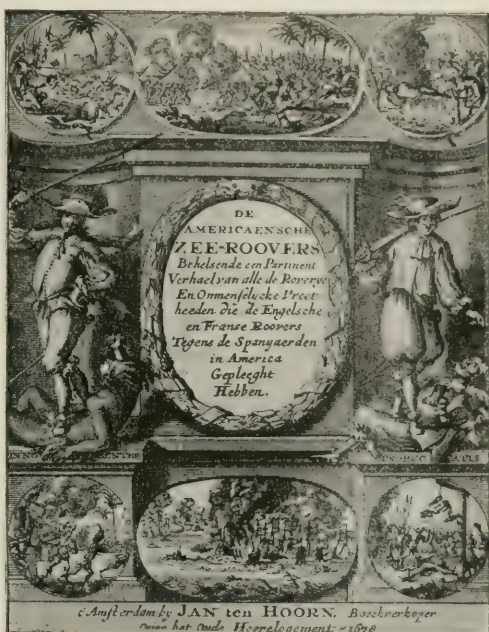 DE
AMERICAENSCHE
ZEE-ROOVERS
Behelsende een Partinent
Verhael van alle de Roverye
En Onmenselycke Vreet
heeden die de Engelsche
en Franse Roovers
Tegens de Spanjaerden
in America
Gepleeght
Hebben.
t'Amsterdam by JAN ten HOORN, Boeckverkoper
over het Oude Heerelogement. Ao 1678